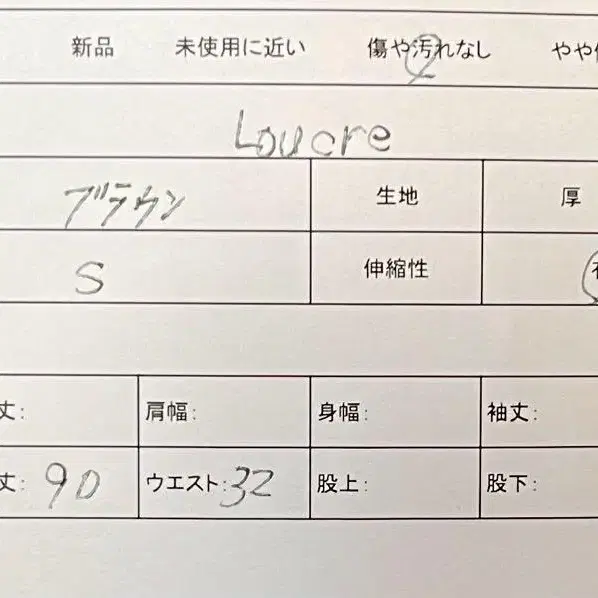 新品 未使用に近い 傷や汚れなし やや
Loucre
ブラウン 生地 厚
S 伸縮性
丈: 肩幅: 身幅: 袖丈:
丈: 90 ウエスト: 32 股上: 股下: